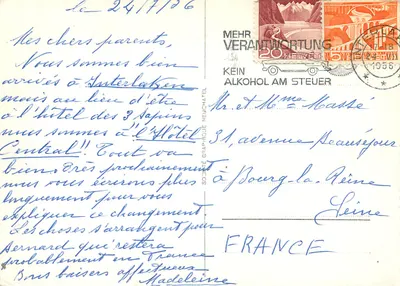 le 24/7/56
Mes chers parents,
Nous sommes bien
arrivés à Interlaken
mais au lieu d'être
à l'hôtel des 3 Sapins
nous sommes à "l'Hôtel
Central". Tout va
bien. Très prochainement
nous vous écrirons plus
longuement pour vous
expliquer ce changement.
Les choses s'arrangent pour
Bernard qui restera
probablement en France
Bons baisers affectueux
Madeleine
MEHR
VERANTWORTUNG
KEIN
ALKOHOL AM STEUER
INTERLAKEN
1956
Mr. et Mme Massé
31, avenue Beauséjour
à Bourg-la-Reine
Seine
FRANCE